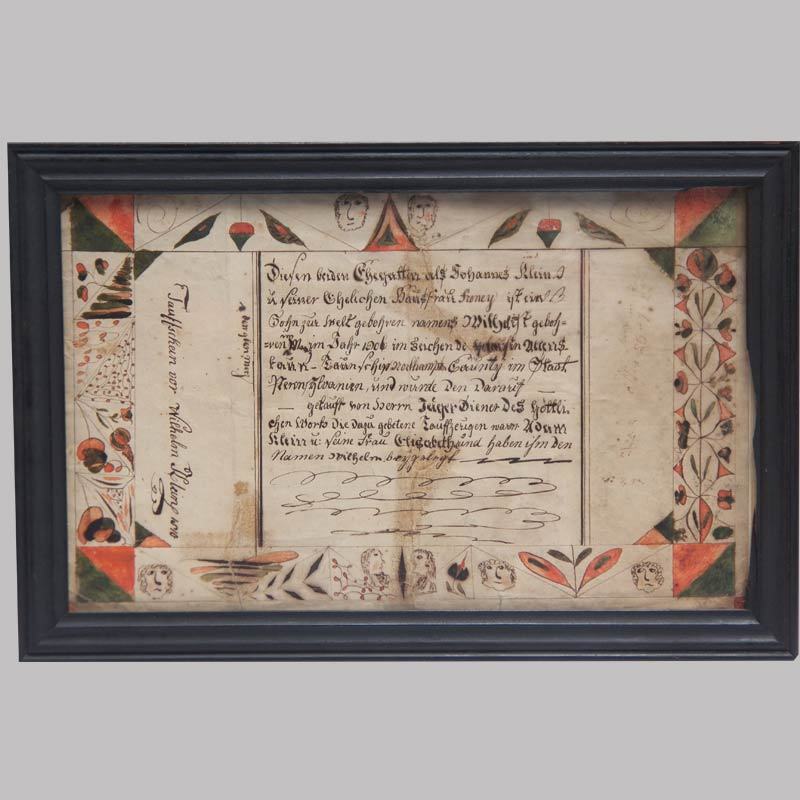 Diesen beiden Ehegatten als Johannes Klein
u seiner Ehelichen Hausfrau Froney ist ein
Sohn zur Welt gebohren namens Wilh ist geboh-
ren im Jahr 1806 im zeichen de
Taunschip County im Staat
Pennsylvanien, und wurde den darauf
getauft von Herrn Jäger Diener des Göttli
chen Worts die dazu gebetene Taufzeugen waren Adam
Klein u: seine Frau Elisabeth und haben ihm den
Namen Wilhelm beygelegt
Taufschein vor Wilhelm Klein 1810